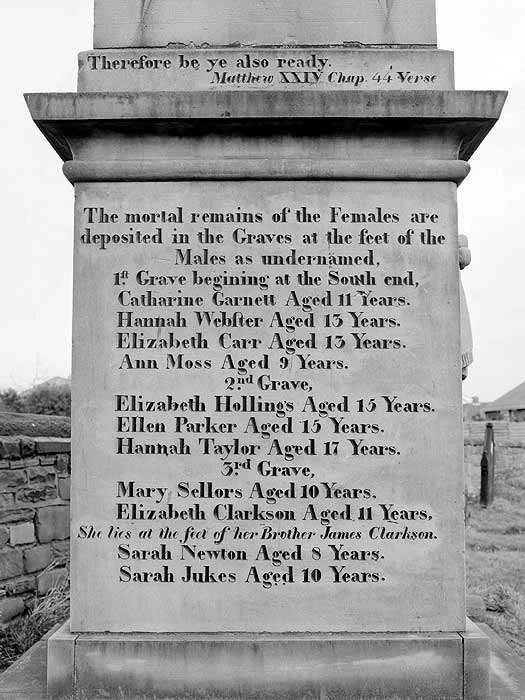 Therefore be ye also ready.
Matthew XXIV Chap. 44 Verse
The mortal remains of the Females are
deposited in the Graves at the feet of the
Males as undernamed,
1st Grave begining at the South end,
Catharine Garnett Aged 11 Years.
Hannah Webster Aged 13 Years.
Elizabeth Carr Aged 13 Years.
Ann Moss Aged 9 Years.
2nd Grave,
Elizabeth Hollings Aged 15 Years.
Ellen Parker Aged 15 Years.
Hannah Taylor Aged 17 Years.
3rd Grave,
Mary Sellors Aged 10 Years.
Elizabeth Clarkson Aged 11 Years,
She lies at the feet of her Brother James Clarkson.
Sarah Newton Aged 8 Years.
Sarah Jukes Aged 10 Years.